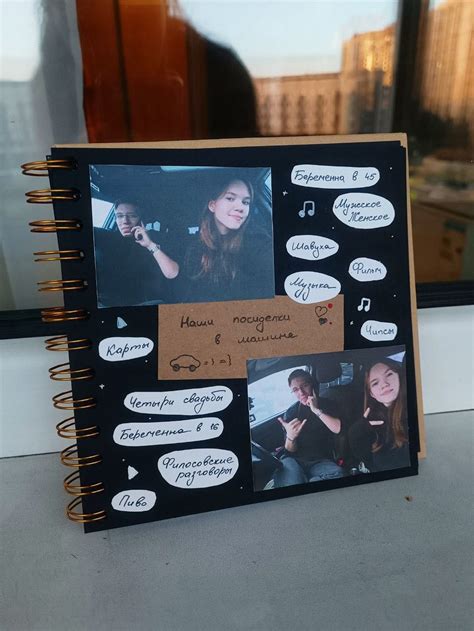 Беременна в 45
Мужское
Женское
Шавуха
Фильм
Музыка
Наши посиделки
в машине
=) =)
Чипсы
Карты
Четыри свадьбы
Беременна в 16
Филосовские
разговоры
Пиво